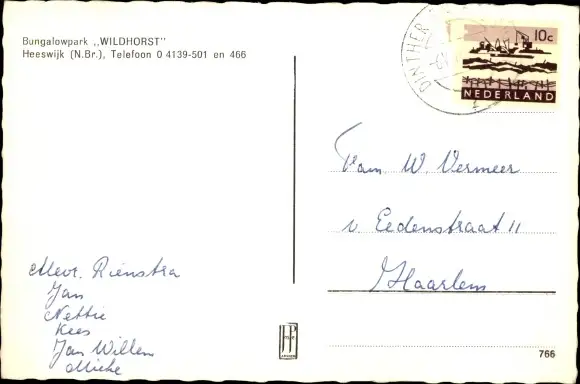 Bungalowpark ,,WILDHORST''
Heeswijk (N.Br.), Telefoon 0 4139-501 en 466
DINTHER
10c
NEDERLAND
Fam. W. Vermeer
v. Eedenstraat 11
Haarlem
Mevr. Rienstra
Jan
Nettie
Kees
Jan Willem
Mieke
766